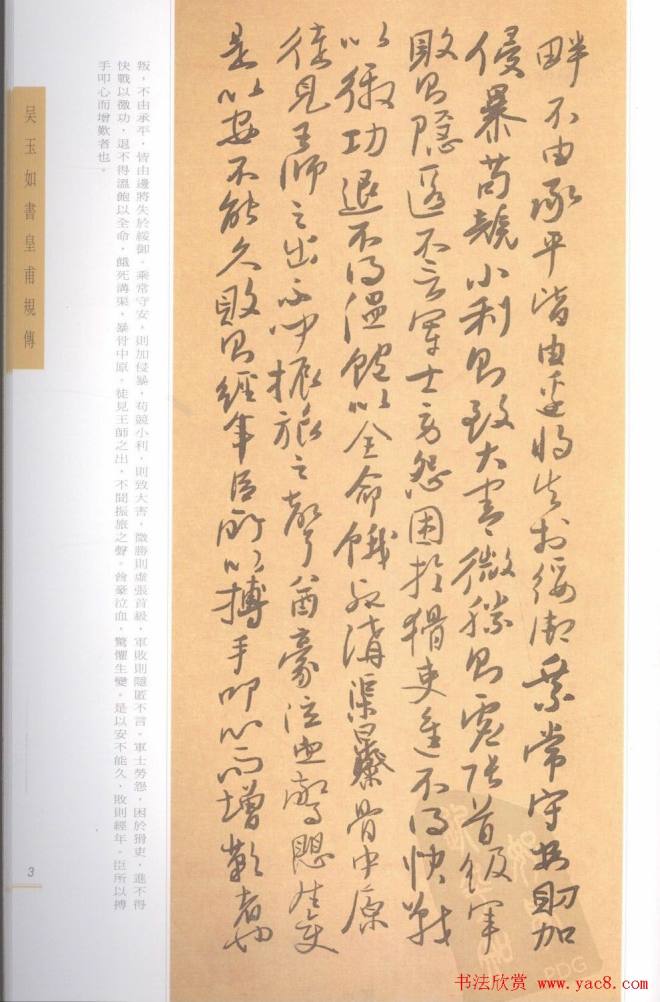 畔不由承平皆由邊將失於綏御乗常守安則加
侵暴苟競小利則致大害微勝則虛張首級軍
敗則隱匿不言軍士勞怨困於猾吏進不得快戰
以徼功退不得溫飽以全命餓死溝渠暴骨中原
徒見王師之出不聞振旅之聲酋豪泣血驚懼生變
是以安不能久敗則經年臣所以搏手叩心而增歎者也
叛，不由承平，皆由邊將失於綏御。乘常守安，則加侵暴，苟競小利，則致大害，微勝則虛張首級，軍敗則隱匿不言。軍士勞怨，困於猾吏，進不得
快戰以徼功，退不得溫飽以全命，餓死溝渠，暴骨中原。徒見王師之出，不聞振旅之聲。酋豪泣血，驚懼生變。是以安不能久，敗則經年。臣所以搏
手叩心而增歎者也。
吴玉如書皇甫規傳
3
书法欣赏 www.yac8.com
PDG